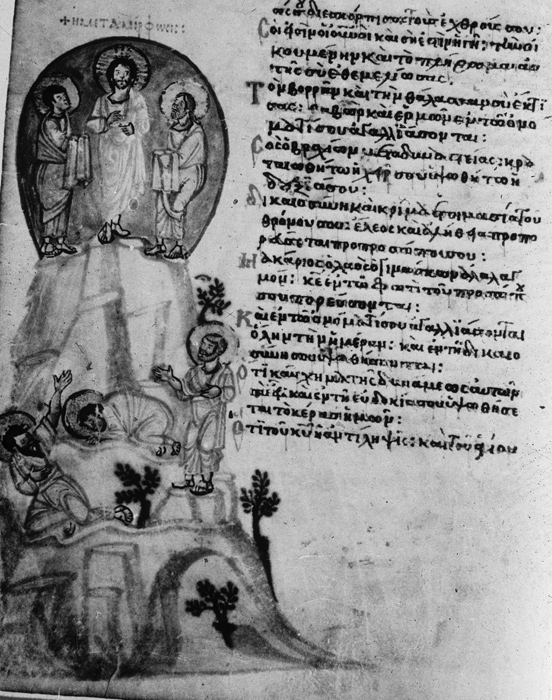 + Η ΜΕΤΑΜΟΡΦΩCΙC:
διεσκόρπισας τοὺς ἐχθρούς σου:
Σοί εἰσιν οἱ οὐνοι καὶ σή ἐστιν ἡ γῆ: τὴν οἰ
κουμένην καὶ τὸ πλήρωμα αὐ
τῆς σὺ ἐθεμελίωσας:
Τὸν βορρᾶν καὶ τὴν θάλασσαν σὺ ἔκτι
σας: θαβὼρ καὶ ἑρμὼν ἐν τῷ ὀνό
ματί σου ἀγαλλιάσονται:
Σὸς ὁ βραχίων μετὰ δυναστείας: κρα
ταιωθήτω ἡ χείρ σου ὑψωθήτω ἡ
δεξιά σου:
Δικαιοσύνη καὶ κρίμα ἑτοιμασία τοῦ
θρόνου σου: ἔλεος καὶ ἀλήθεια προπο
ρεύσεται πρὸ προσώπου σου:
Μακάριος ὁ λαὸς ὁ γινώσκων ἀλαλαγ
μόν: κε ἐν τῷ φωτὶ τοῦ προσώπου
σου πορεύσονται:
Καὶ ἐν τῷ ὀνόματί σου ἀγαλλιάσονται
ὅλην τὴν ἡμέραν: καὶ ἐν τῇ δικαιο
σύνῃ σου ὑψωθήσονται:
Ὅτι καύχημα τῆς δυνάμεως αὐτῶν
σὺ εἶ: καὶ ἐν τῇ εὐδοκίᾳ σου ὑψωθήσε
ται τὸ κέρας ἡμῶν:
Ὅτι τοῦ κυ ἡ ἀντίληψις: καὶ τοῦ ἁγίου